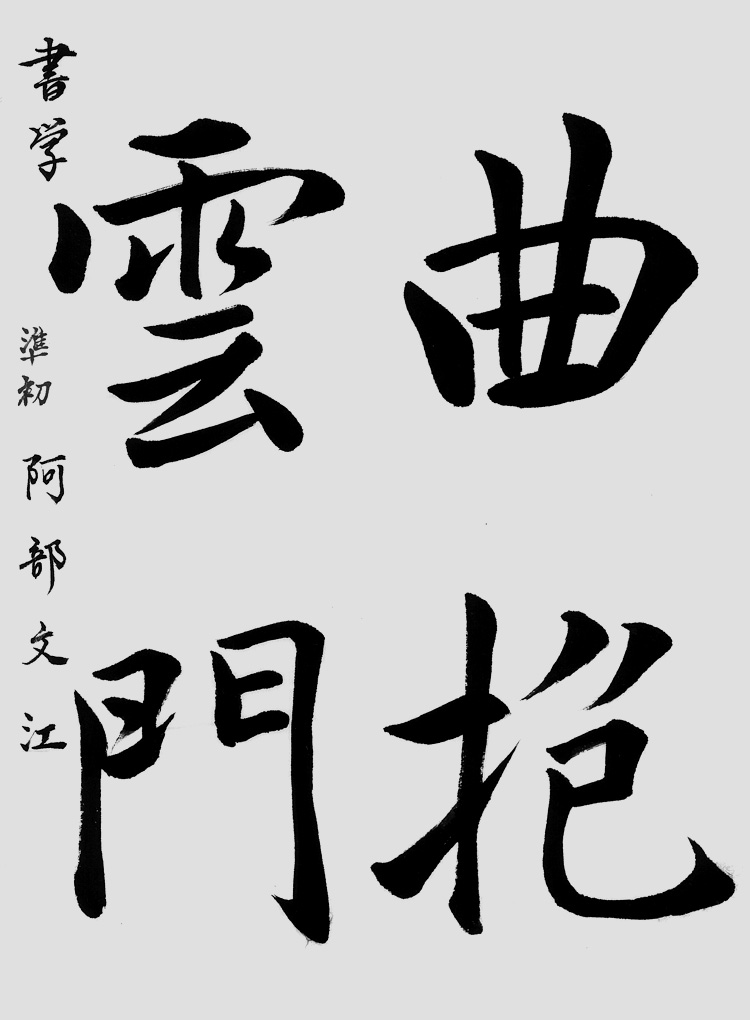 曲抱
雲門
書学 準初 阿部文江